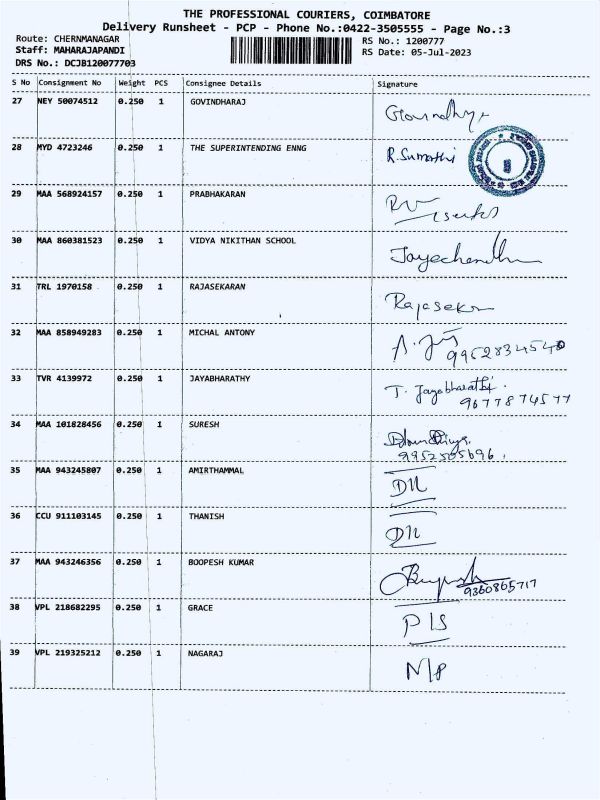 THE PROFESSIONAL COURIERS, COIMBATORE
Delivery Runsheet - PCP - Phone No.:0422-3505555 - Page No.:3
Route: CHERNMANAGAR RS No.: 1200777
Staff: MAHARAJAPANDI RS Date: 05-Jul-2023
DRS No.: DCJB120077703
S No Consignment No Weight PCS Consignee Details Signature
27 NEY 50074512 0.250 1 GOVINDHARAJ
28 MYD 4723246 0.250 1 THE SUPERINTENDING ENNG R. Sumathi
29 MAA 568924157 0.250 1 PRABHAKARAN
30 MAA 860381523 0.250 1 VIDYA NIKITHAN SCHOOL
31 TRL 1970158 0.250 1 RAJASEKARAN Rajasekr
32 MAA 858949283 0.250 1 MICHAL ANTONY
33 TVR 4139972 0.250 1 JAYABHARATHY T. Jayabharathi.
9677874577
34 MAA 101828456 0.250 1 SURESH
9952505696.
35 MAA 943245807 0.250 1 AMIRTHAMMAL
36 CCU 911103145 0.250 1 THANISH
37 MAA 943246356 0.250 1 BOOPESH KUMAR
9360865717
38 VPL 218682295 0.250 1 GRACE P/S
39 VPL 219325212 0.250 1 NAGARAJ N/P